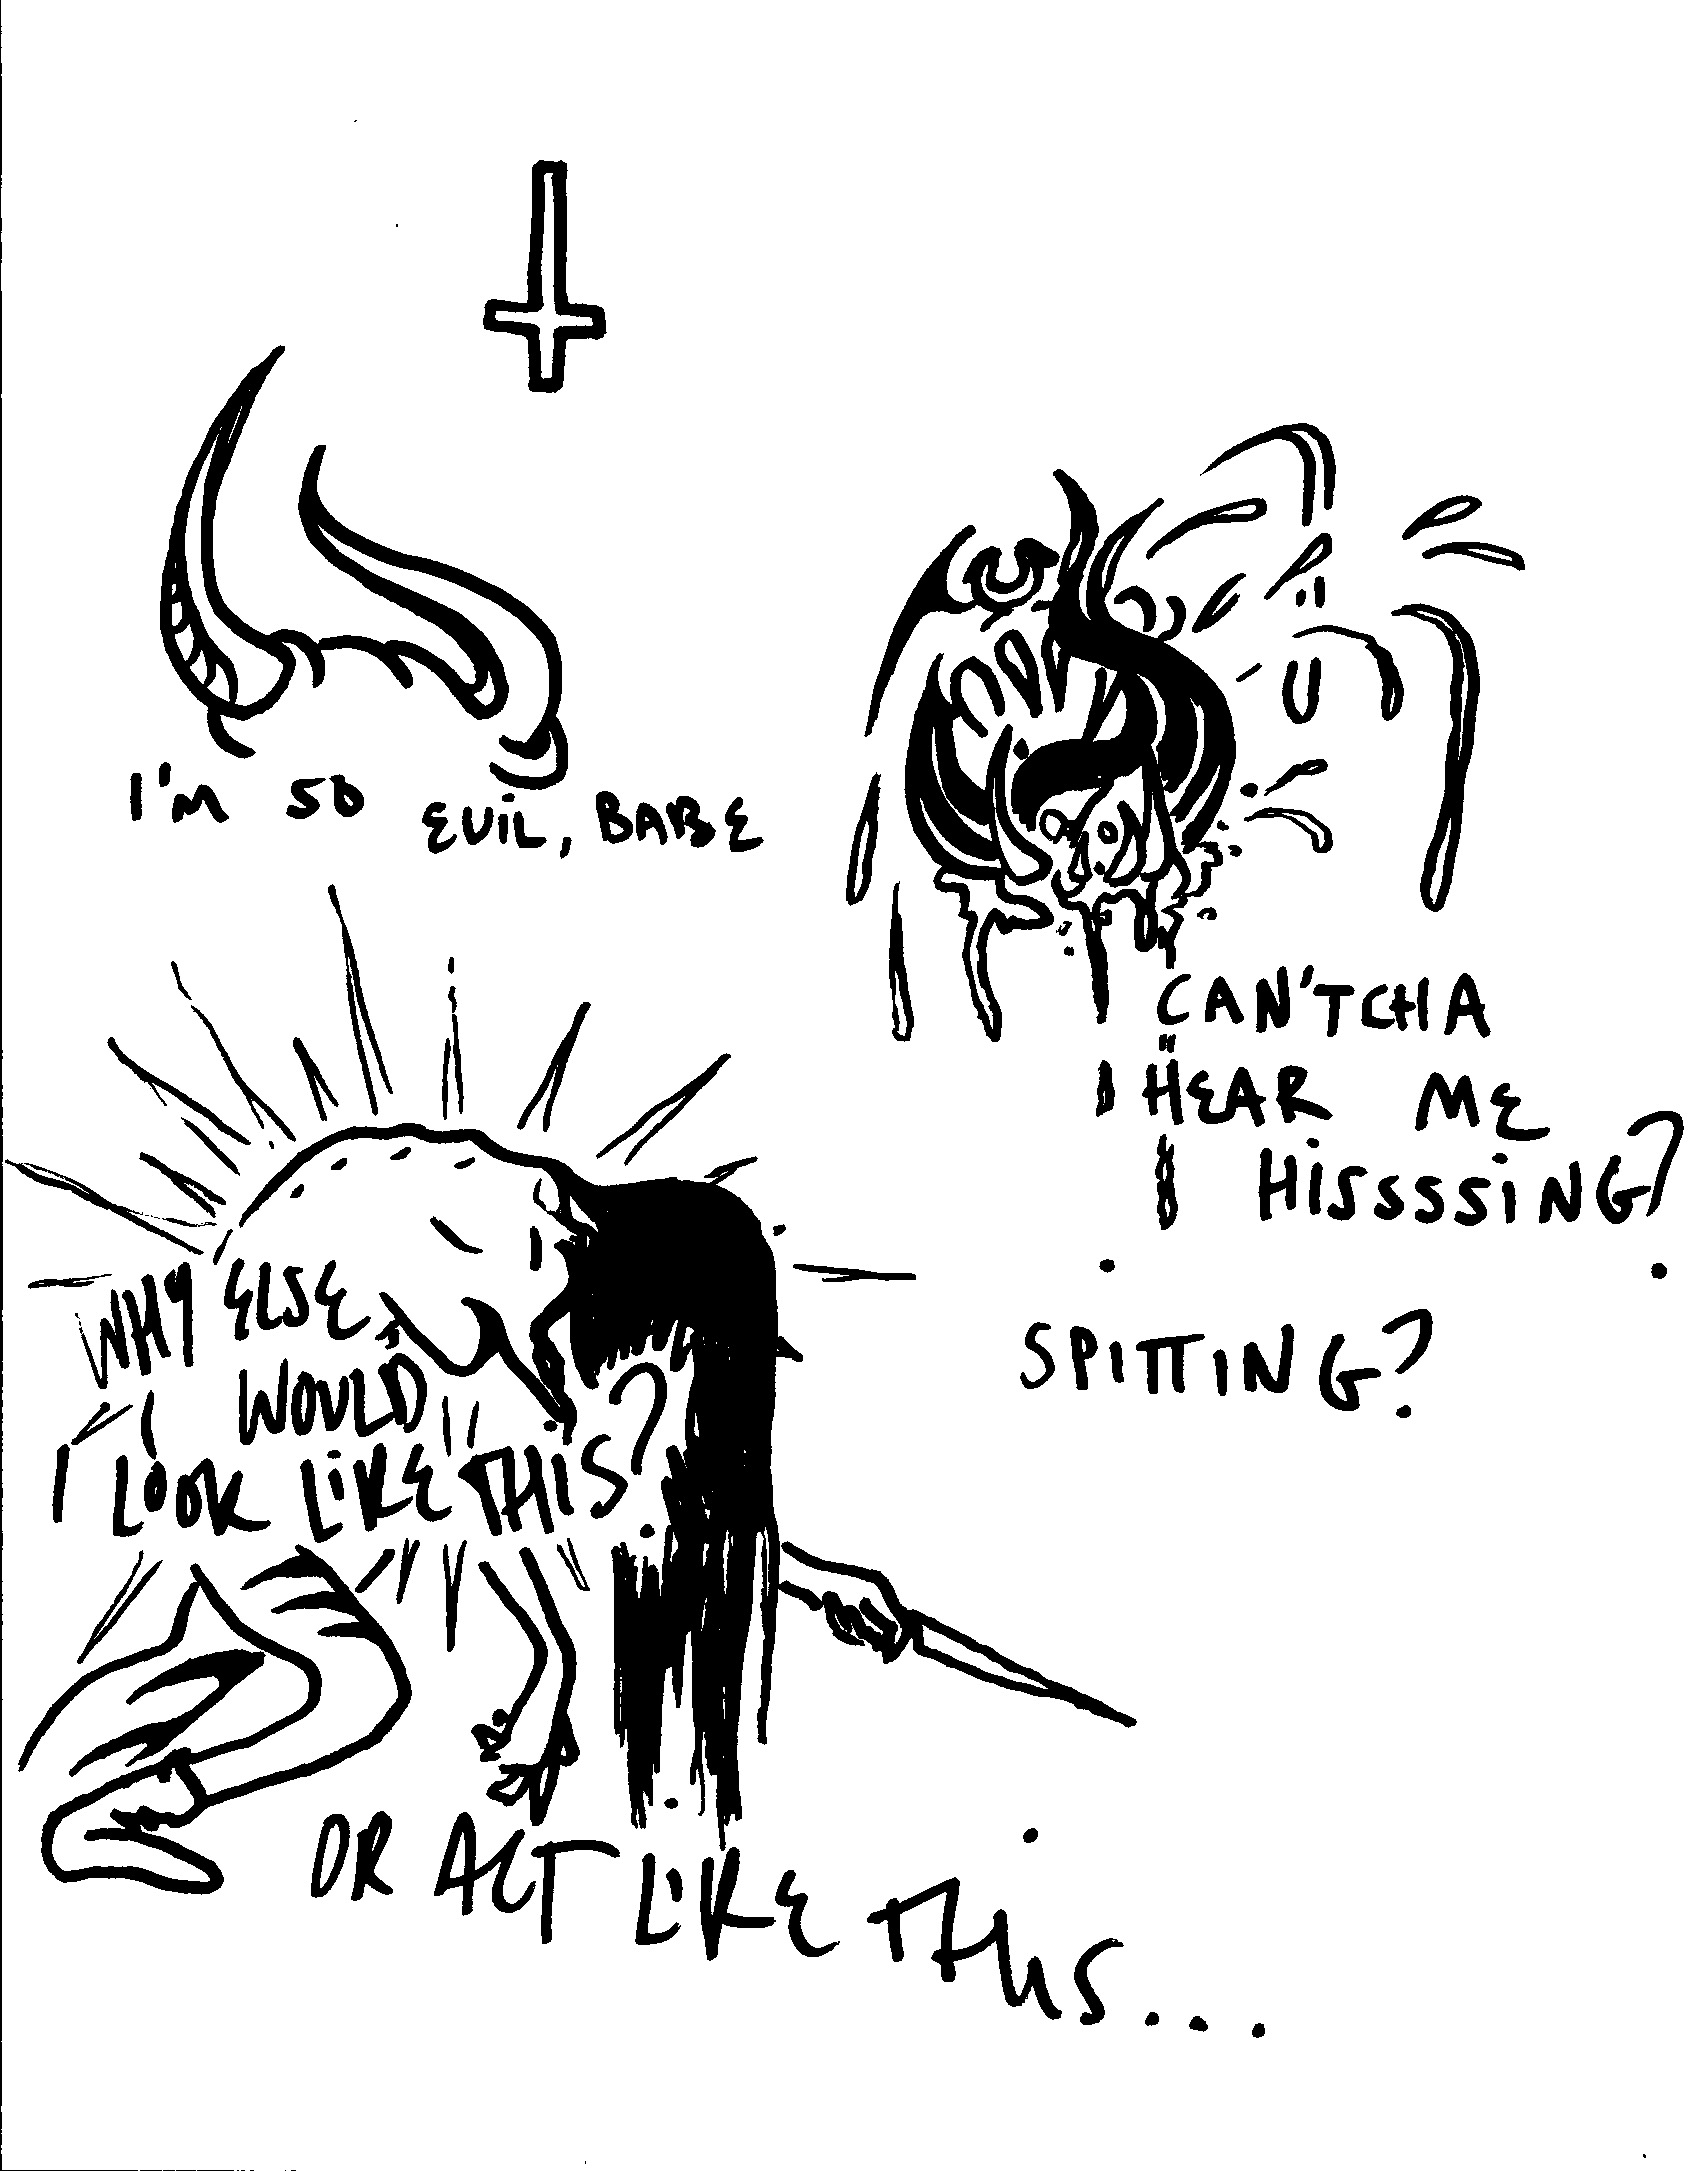 I'M SO EVIL, BABE
CAN'TCHA
HEAR ME
HISSSSING?
SPITTING?
WHY ELSE
WOULD
I LOOK LIKE THIS?
OR ACT LIKE THIS...